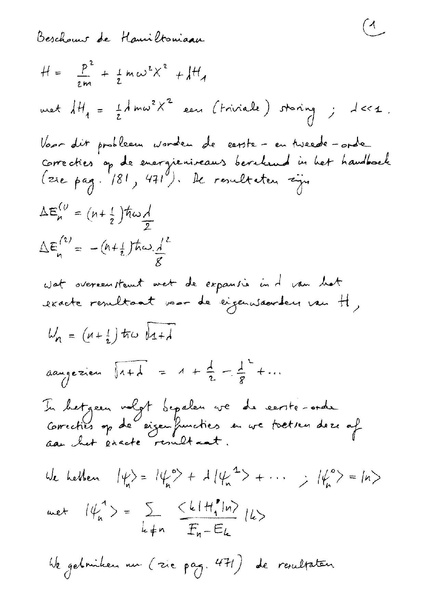 (1
Beschouw de Hamiltoniaan
H = p²/2m + ½ mω²X² + λH₁
met λH₁ = ½ λmω²X² een (triviale) storing ; λ<<1.
Voor dit probleem worden de eerste- en tweede-orde
correcties op de energieniveaus berekend in het handboek
(zie pag. 181, 471). De resultaten zijn
ΔEₙ⁽¹⁾ = (n+½)ħω λ/2
ΔEₙ⁽²⁾ = -(n+½)ħω λ²/8
wat overeenstemt met de expansie in λ van het
exacte resultaat voor de eigenwaarden van H,
Wₙ = (n+½)ħω √(1+λ)
aangezien √(1+λ) = 1 + λ/2 - λ²/8 + ...
In hetgeen volgt bepalen we de eerste-orde
correcties op de eigenfuncties en we toetsen deze af
aan het exacte resultaat.
We hebben |ψₙ> = |ψₙ⁰> + λ|ψₙ¹> + ... ; |ψₙ⁰> = |n>
met |ψₙ¹> = Σ_{k≠n} <k|H₁|n>/(Eₙ-Eₖ) |k>
We gebruiken nu (zie pag. 471) de resultaten